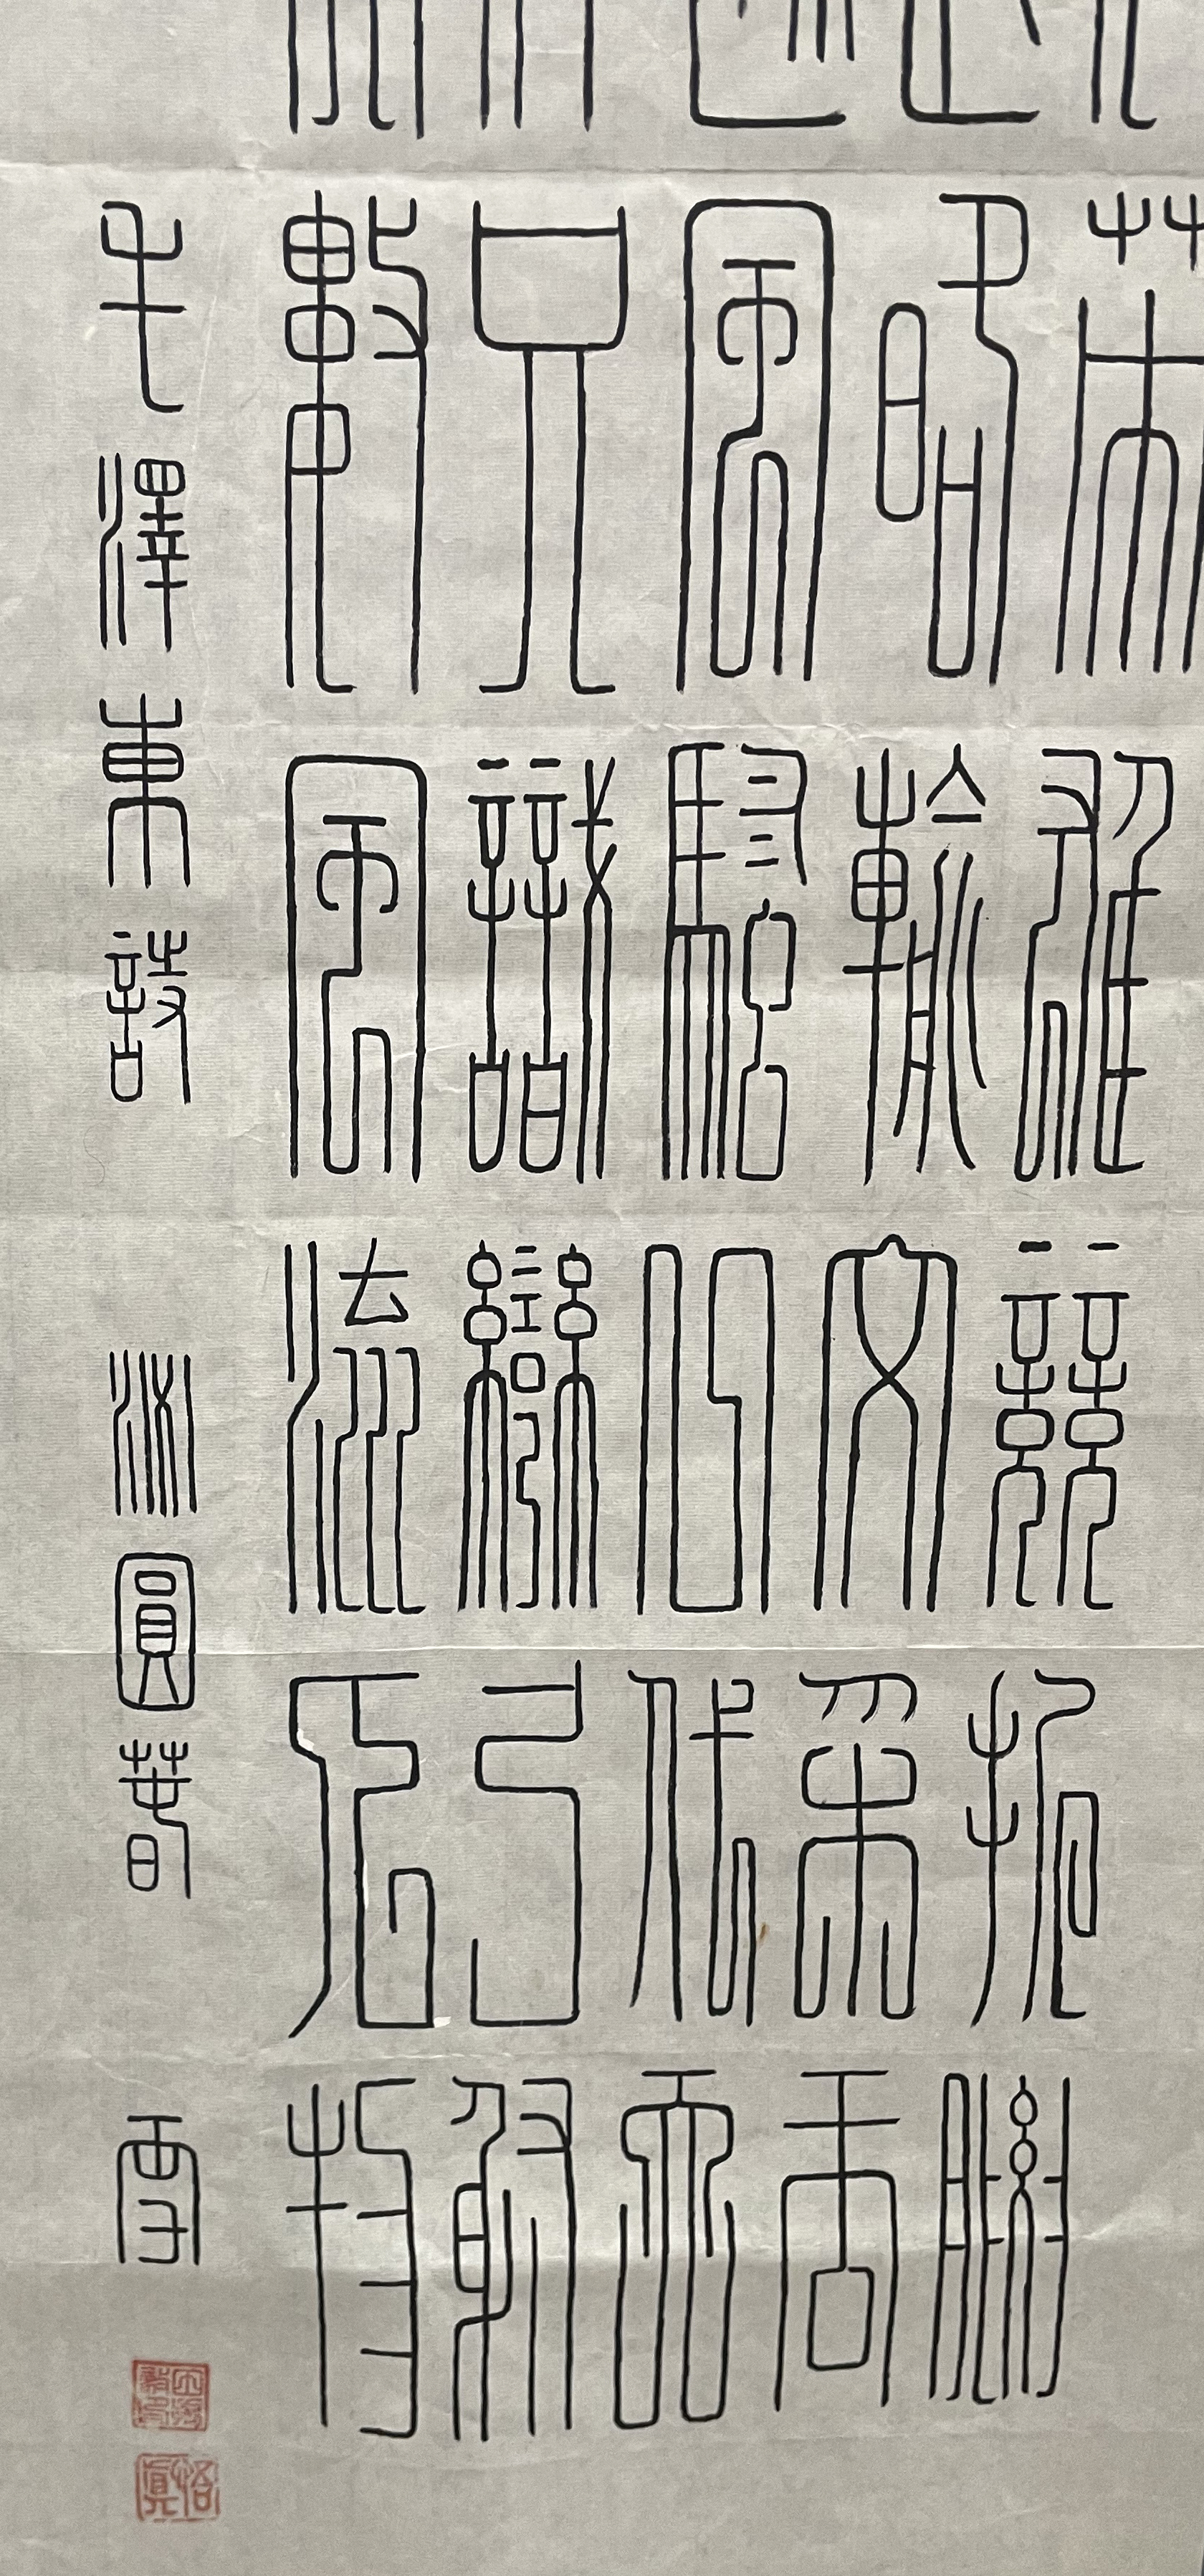 英雄競折腰
略輸文采唐
風騷一代天
只識彎弓射
數風流人物
毛澤東詩 沁園春 雪